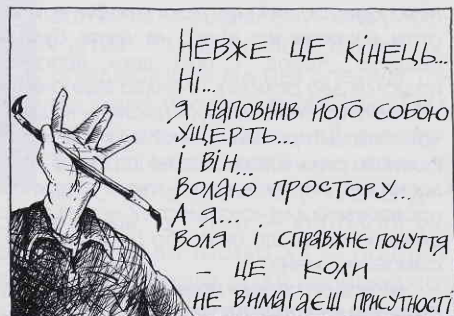 НЕВЖЕ ЦЕ КІНЕЦЬ...
НІ...
Я НАПОВНИВ ЙОГО СОБОЮ
УЩЕРТЬ...
І ВІН...
ВОЛАЮ ПРОСТОРУ...
А Я...
ВОЛЯ І СПРАВЖНЄ ПОЧУТТЯ
– ЦЕ КОЛИ
НЕ ВИМАГАЄШ ПРИСУТНОСТІ